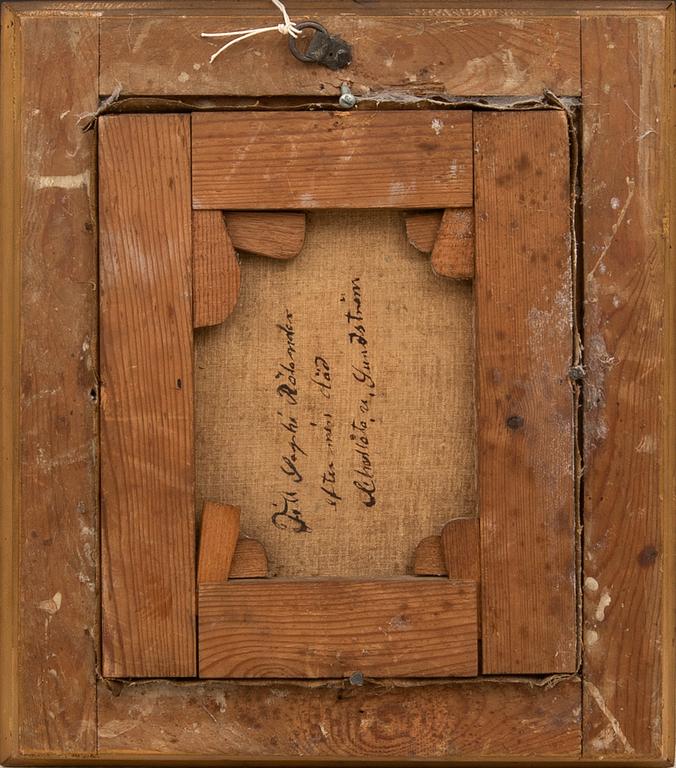 Till Sophi Rolander
efter min död
Charlotta v. Sundström